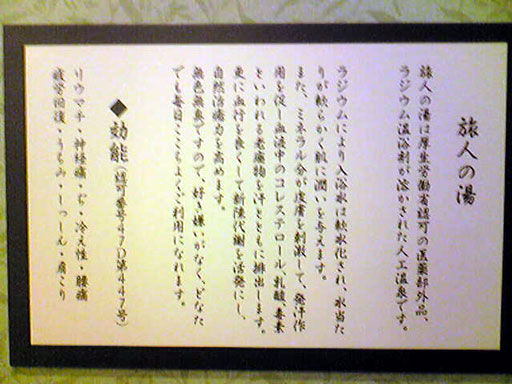 旅人の湯
旅人の湯は厚生労働省認可の医薬部外品、
ラジウム温浴剤が溶かされた人工温泉です。
ラジウムにより入浴水は軟水化され、水当た
りが軟らかく肌に潤いを与えます。
また、ミネラル分が皮膚を刺激して、発汗作
用を促し血液中のコレステロール、乳酸、毒素
といわれる老廃物を汗とともに排出します。
更に血行を良くして新陳代謝を活発にし、
自然活癒力を高めます。
無色無臭ですので、好き嫌いがなく、どなた
でも毎日ここちよくご利用になれます。
◆効能(認可番号47D第447号)
リウマチ・神経痛・ぢ・冷え性・腰痛
疲労回復・うちみ・しっしん・肩こり